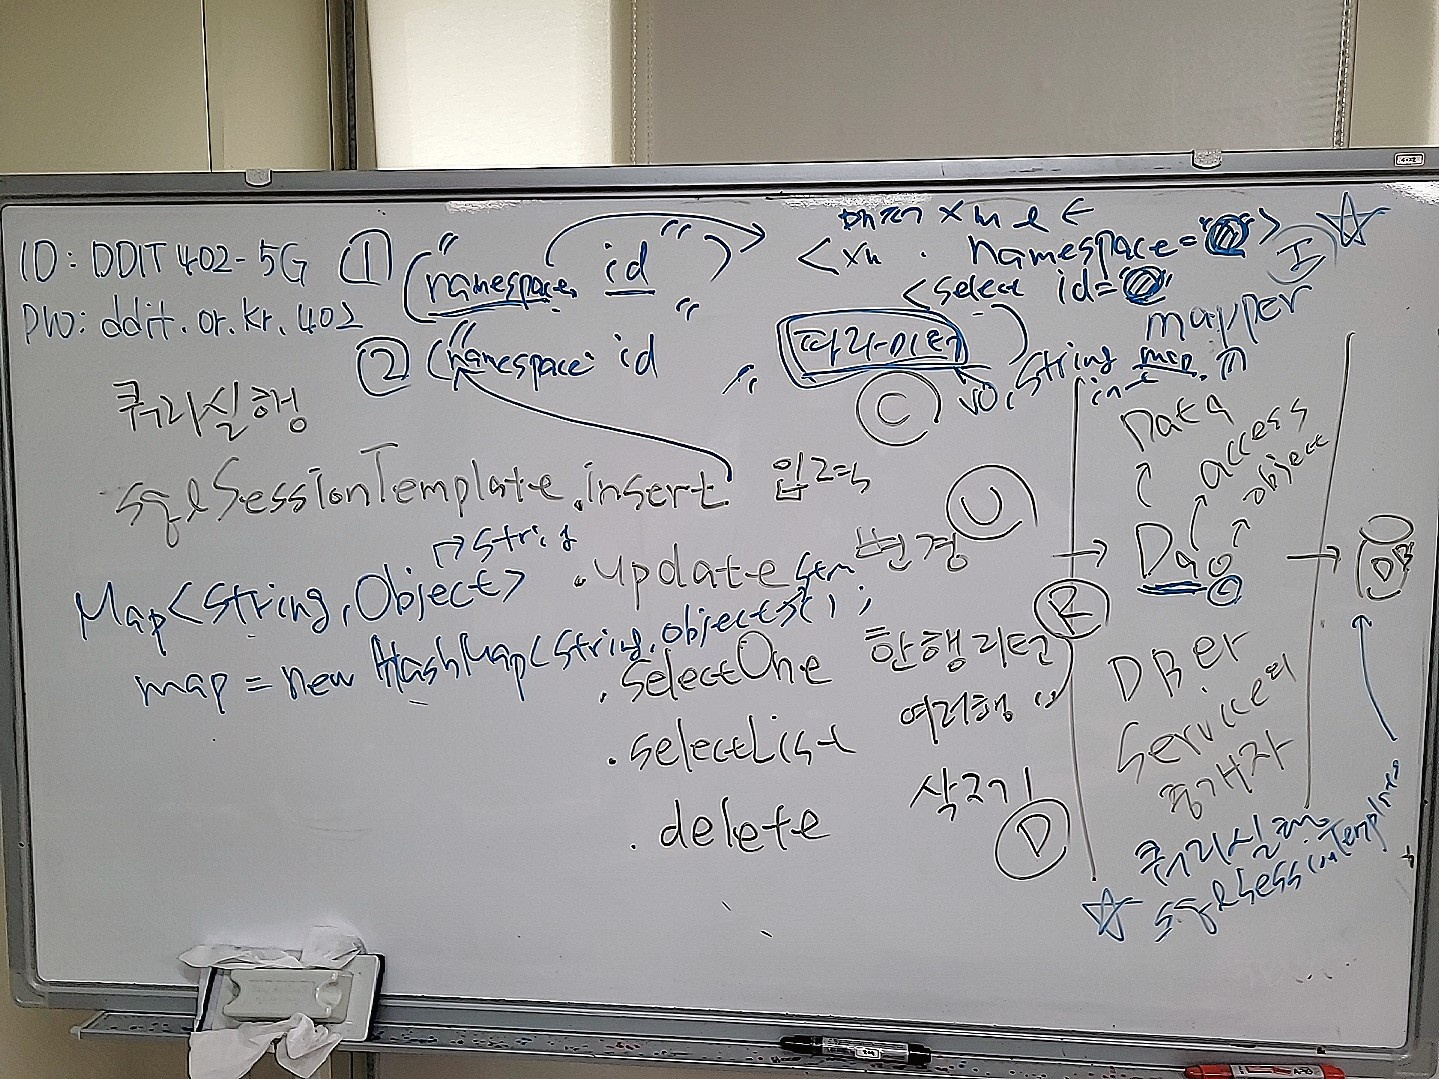 ID: DDIT 402-5G
PW: ddit.or.kr.402
① ("namespace. id")
② ("namespace. id", 파라미터)
<xm . namespace="">
<select id=
mapper
vo, String, map,
int
쿼리실행
sqlSessionTemplate.insert 입력
C
.update 변경
U
.selectOne 한행 리턴
R
.selectList 여러행 〃
.delete 삭제
D
→String
Map<String, Object>
map = new HashMap<String, Object>();
Data
access
object
→ Dao → DB
DB와
Service의
중개자
쿼리실행
☆ sqlSessionTemplate